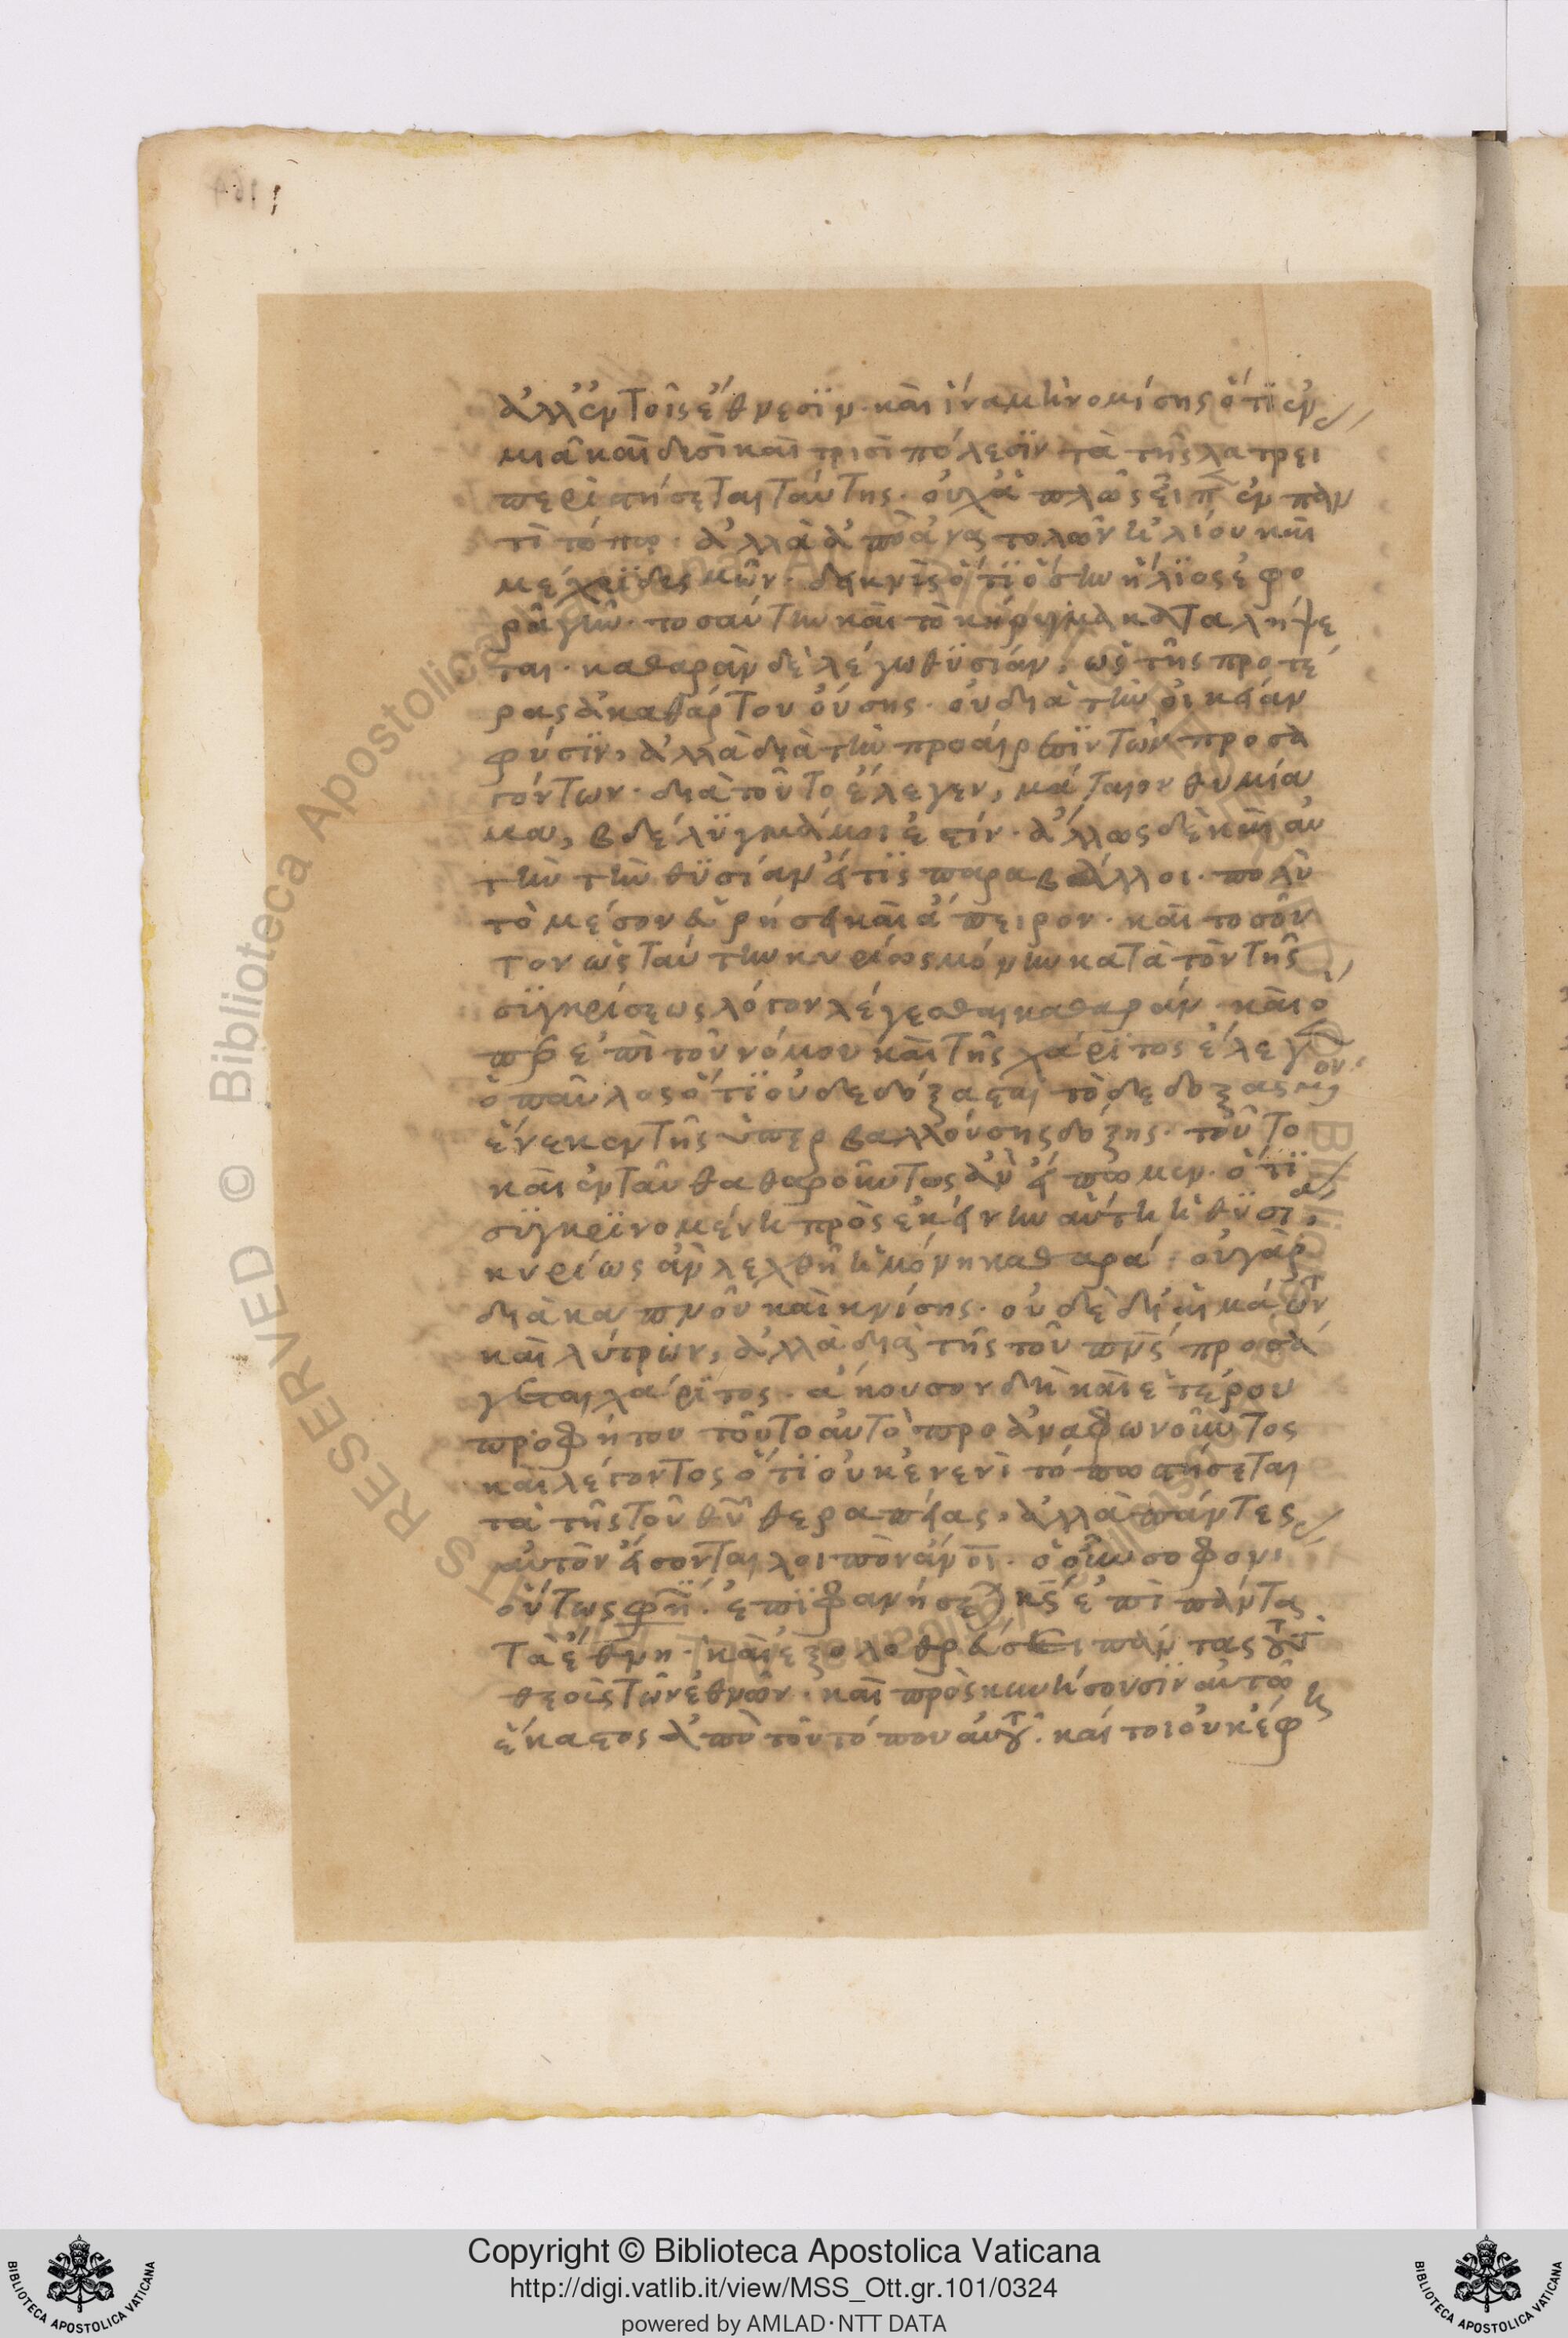 ἀλλ' ἐν τοῖς ἔθνεσϊν. καὶ ἵνα μὴ νομίσης ὅτϊ ἐν
μιᾶ καὶ δυσὶ καὶ τρισὶ πόλεσϊν τὰ τῆς λατρεί
περιστήσεται ταύτης. οὐχ ἁπλῶς εἶπεν ἐν παν
τὶ τόπω. ἀλλὰ ἀπὸ ἀνατολῶν ἡλίου καὶ
μέχρϊ δυσμῶν. δεικνὺς ὅτϊ ὅσην ἥλϊος ἐφο
ρᾶ γῆν. τοσαύτην καὶ τὸ κήρυγμα καταλήψε
ται. καθαρὰν δὲ λέγω θϋσίαν, ὡς τῆς προτέ
ρας ἀκαθάρτου οὔσης. οὐ διὰ τὴν οἰκείαν
φύσϊν, ἀλλὰ διὰ τὴν προαίρεσϊν τῶν προσα
γόντων. διὰ τοῦτο ἔλεγεν, μάταιον θυμία
μα, βδέλϋγμά μοι ἐστίν. ἄλλως δὲ καὶ αὐ
τὴν τὴν θϋσίαν εἴ τϊς παραβάλλοι. πολὺ
τὸ μέσον εὑρήσει καὶ ἄπειρον. καὶ τοσοῦ
τον ὡς ταύτην κυρίως μόνην κατὰ τὸν τῆς
σϋγκρίσεως λόγον λέγεσθαι καθαράν. καὶ ὅ
περ ἐπὶ τοῦ νόμου καὶ τῆς χάρϊτος ἔλεγεν
ὁ παῦλος ὅτϊ οὐ δεδόξασται τὸ δεδοξασμένον
ἕνεκεν τῆς ὑπερβαλλούσης δόξης. τοῦτο
καὶ ἐνταῦθα θαροῦντως ἂν εἴπωμεν. ὅτϊ
σϋγκρϊνομένη πρὸς ἐκείνην αὕτη ἡ θϋσία
κυρίως ἂν λεχθῆ ἡ μόνη καθαρά: οὐ γὰρ
διὰ καπνοῦ καὶ κνίσης. οὐδὲ δι' αἱμάτων
καὶ λύτρων, ἀλλὰ διὰ τῆς τοῦ πνς προσά
γεται χάρϊτος. ἄκουσον δὴ καὶ ἑτέρου
προφήτου τοῦτο αὐτὸ προαναφωνοῦντος
καὶ λέγοντος ὅτϊ οὐκ ἐν ἑνὶ τόπω στήσεται
τὰ τῆς τοῦ θυ θεραπείας, ἀλλὰ πάντες
αὐτὸν εἴσονται λοιπὸν ἀνοι. ὁ οὖν σοφονι
οὕτως φησΐ. ἐπϊφανήσεται κς ἐπὶ πάντα
τὰ ἔθνη. καὶ ἐξολοθρεύσει πάντας τοὺς
θεοὺς τῶν ἐθνῶν. καὶ προσκυνήσουσϊν αὐτῶ
ἕκαστος ἀπὸ τοῦ τόπου αὐτοῦ. καίτοι οὐκ ἐφ